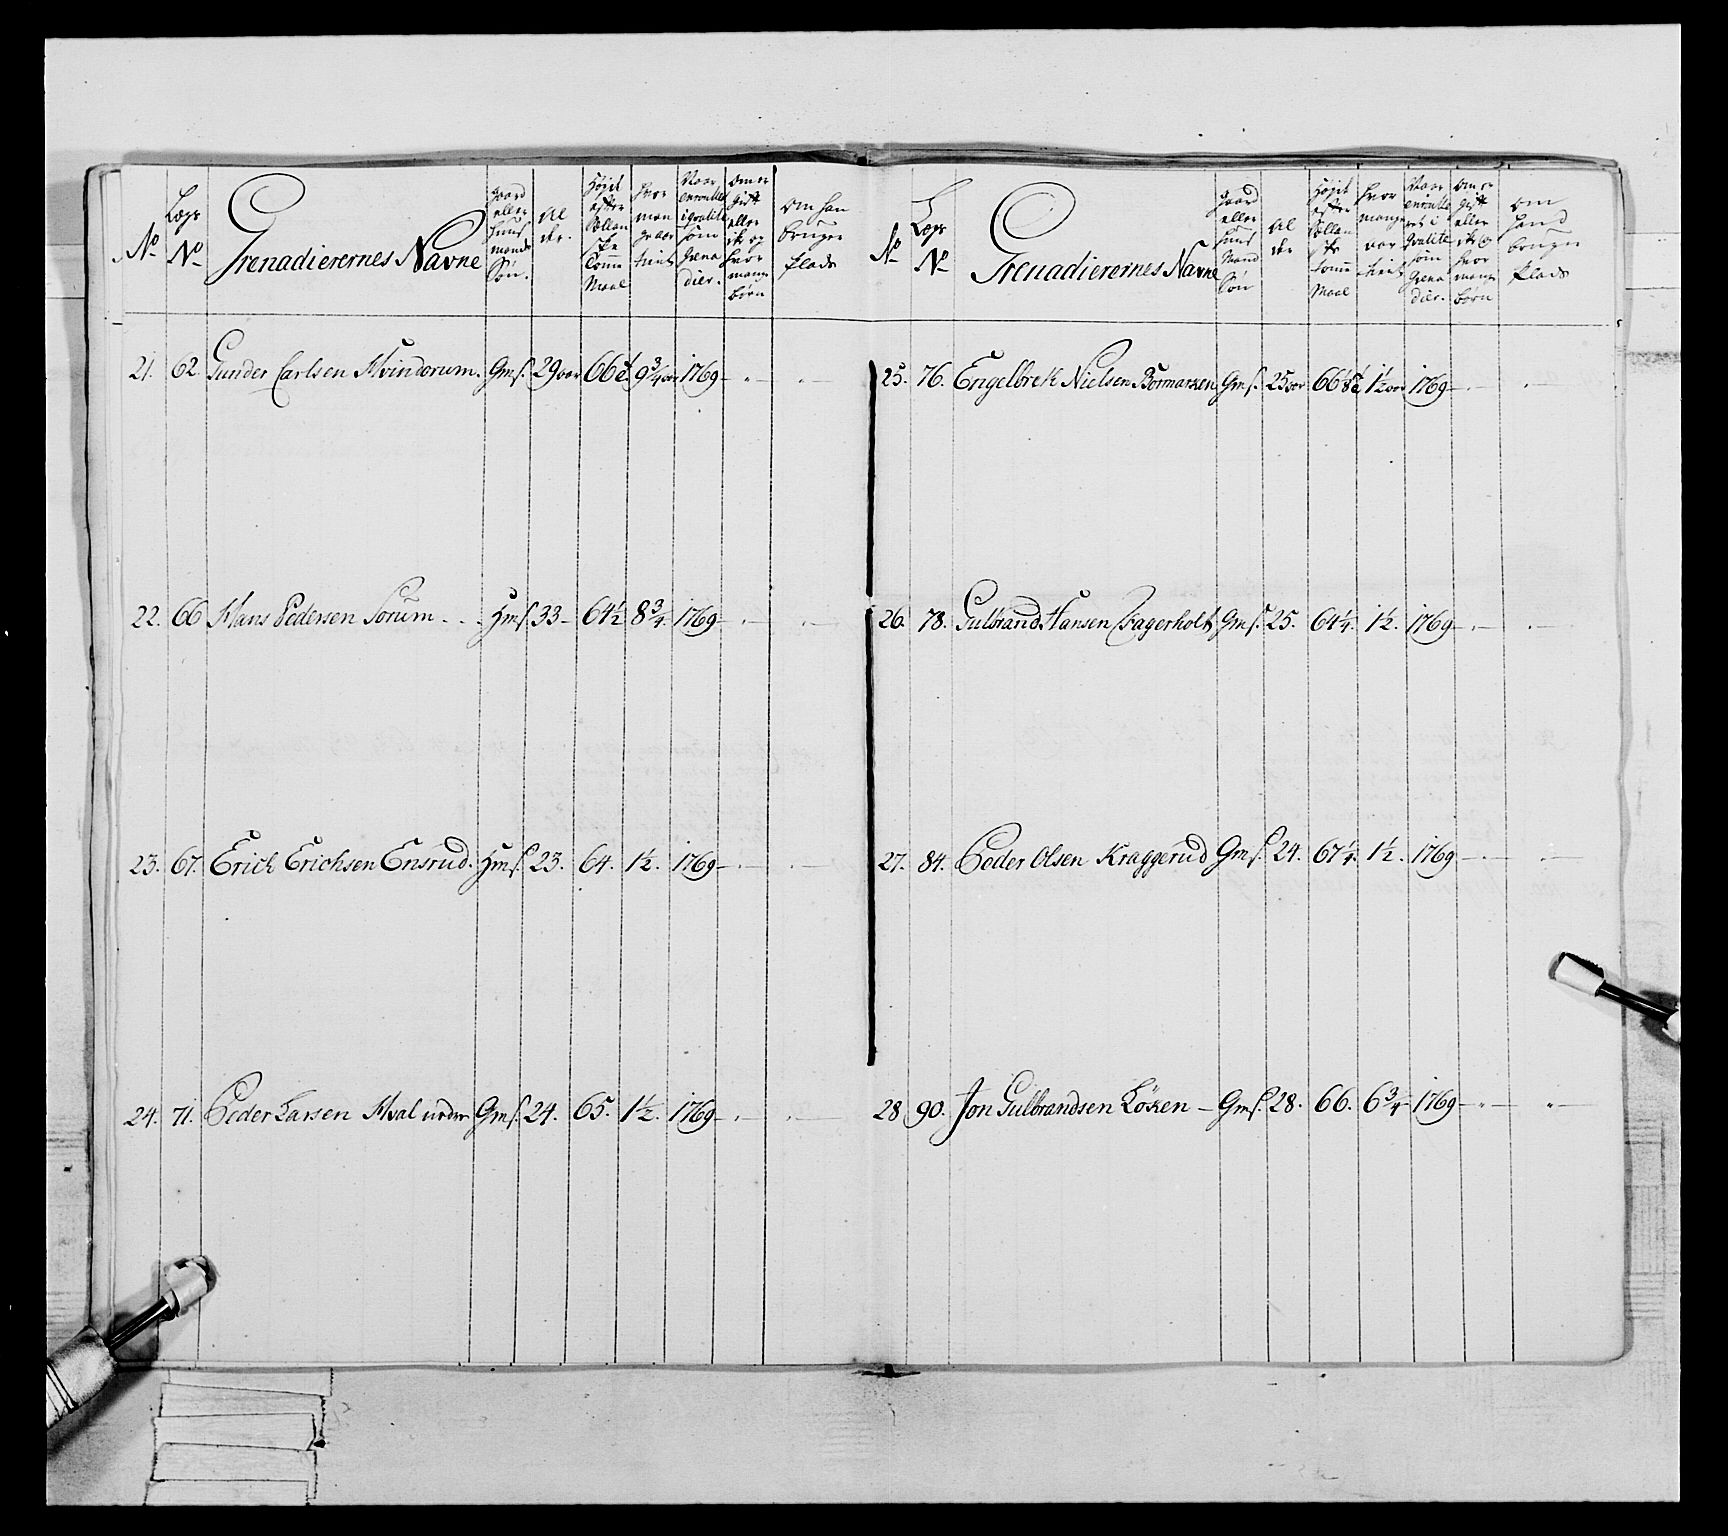 No
Lægs No
Grenadierernes Navne
gaard eller huusmands Søn.
Alder.
Højde efter Sollandske Tomme Maal
hvor mange aar tient
Naar enrollert i qvalite som Grenadier.
Om er gift eller ik og hvor mange børn
Om han bruger Plads
21. 62. Gunder Carlsen Hvindorum. Gmſ. 29 aar 66 9 3/4 aar 1769 — " —
22. 66 Hans Pedersen Sorum - . . Hmſ. 33 - 64 1/2 8 3/4. 1769 — . —
23. 67. Erich Erichsen Ensrud. Hmſ. 23. 64. 1 1/2. 1769 — . —
24. 71. Peder Larsen Hval Gmſ. 24. 65. 1 1/2. 1769 — . —
No
Lægs No
Grenadierernes Navne
gaard eller huus Mand Søn
Alder
Højde efter Sollandske tomme Maal
hvor mange aar tient
Naar enrollert i Qvalite som Grenadier.
Om er gift eller ik og hvor mange børn
Om hand bruger Plads
25. 76. Engelbrek Nielsen Gmſ. 25 aar 66 1 1/2 aar 1769 — . —
26. 78. Gulbrand Hansen Fagerholt Gmſ. 25. 64 1/4. 1 1/2. 1769 — . —
27. 84. Peder Olsen Kraggerud Gmſ. 24. 67 1/4. 1 1/2. 1769 — . —
28 90. Jon Gulbrandsen Löken — Gmſ. 28. 66. 6 3/4 1769 — " —